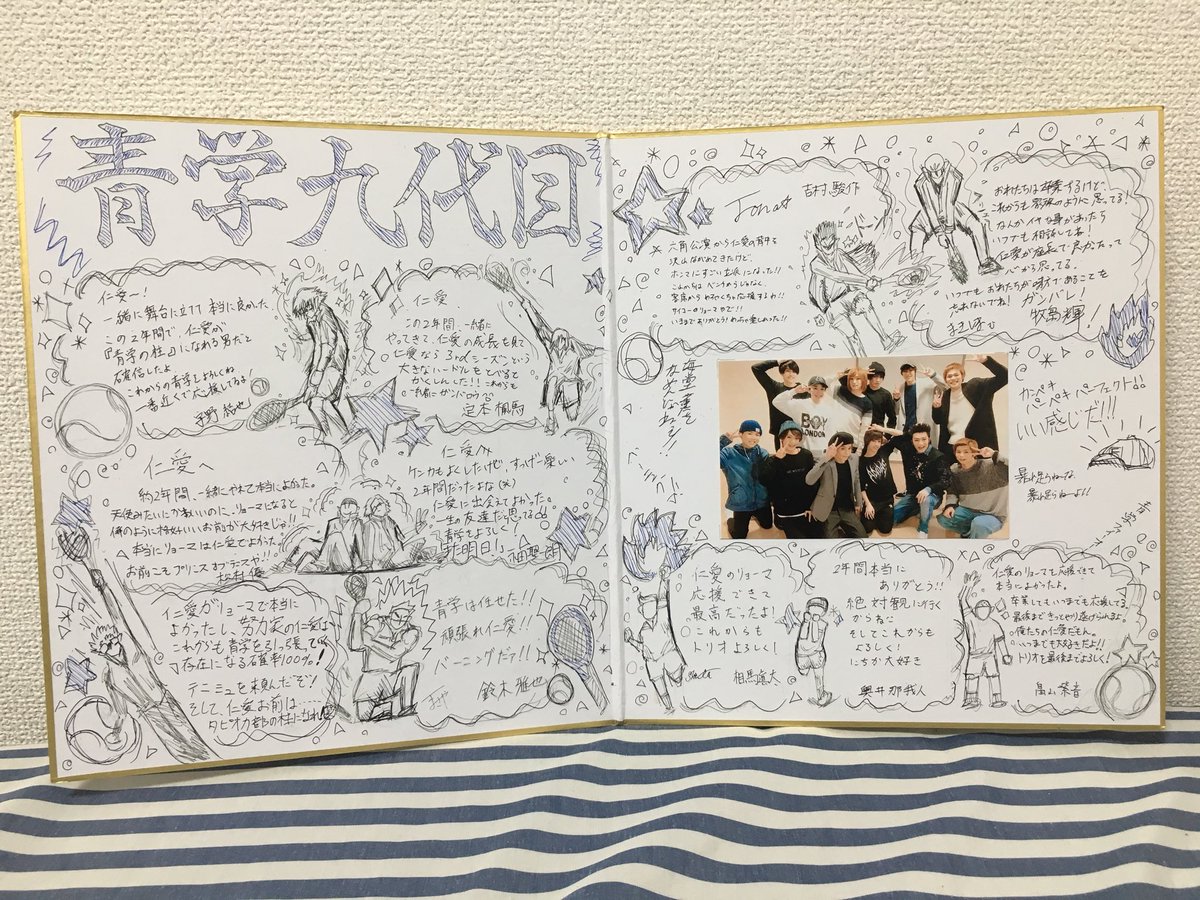 青学九代目
仁愛へ!
一緒に舞台に立てて本当に良かった
この2年間で、仁愛が
『青学の柱』になれる男だと
確信したよ
これからの青学をよろしくね
一番近くで応援してる!
仁愛
この2年間、一緒に
やってきて、仁愛の成長を見て
仁愛なら3rdシーズンという
大きなハードルをとびこえると
かくしんした!!これからも
一緒にガンバロウ
定本楓馬
仁愛へ
約2年間、一緒にやれて本当によかった。
天使みたいにかわいいのに、リョーマになると
俺のように格好いいお前が大好きじゃ!!
本当にリョーマは仁愛でよかった。
お前こそプリンスオブテニスや!!
松村優
仁愛へ
ケンカもよくしたけど、すっげー楽しい
2年間だったよな(笑)
仁愛に出会えてよかった。
一生の友達だと思ってる
青学をよろしく!
また明日!
仁愛がリョーマで本当に
よかったし、努力家の仁愛は
これからも青学を引っ張っていく
存在になる確率100%!
テニミュを頼んだぞ!
そして、仁愛お前は…
タピオカ部の柱になれ
青学は任せた!!
頑張れ仁愛!!
バーニングだァ!!
鈴木雅也
Jonas
吉村駿作
六角公演から仁愛の背中を
沢山ながめてきたけど、
ホンマにすごい立派になった!!
これからは ベンチからじゃなく、
客席から めちゃくちゃ応援するわ!!
サイコーのリョーマやで!!
いままでありがとう!めっちゃ楽しかった!!
おれたちは卒業するけど、
これからも家族のように思ってる!
なんかイヤな事があったら
いつでも相談してね!
仁愛が座長で良かったって
心から思ってる。
いつでもおれたちが味方であることを
忘れないでね!ガンバレ!
牧島輝!
海堂薫を
なめんなよ!!
BOY
LONDON
カンペキ
パーペキ パーフェクト!!
いい感じだ!!!
暴れ足りねーな、
暴れ足りねーよ!!
仁愛のリョーマ
応援できて
最高だったよ!
これからも
トリオよろしく!
相馬眞太
2年間本当に
ありがとう!!
絶対観に行く
からね
そしてこれからも
よろしく!
にちか大好き
奥井那我人
仁愛のリョーマを応援できて
本当によかったよ。
卒業してもいつまでも応援してる
俺たちの仁愛だもん。
いつまでも大好きだよ!!
トリオを最後までよろしく!